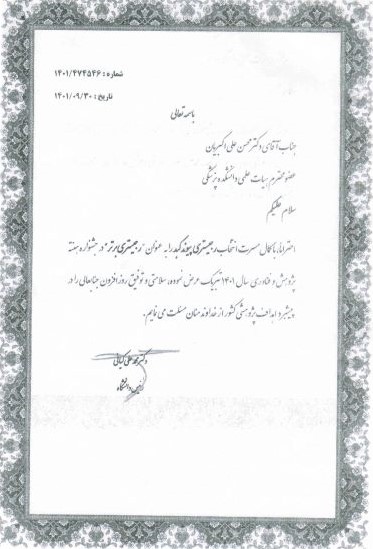 شماره : ۱۴۰۱/۴۷۴۵۴۶
تاریخ : ۱۴۰۱/۰۹/۳۰
باسمه تعالی
جناب آقای دکتر محسن علی اکبریان
عضو محترم هیات علمی دانشکده پزشکی
سلام علیکم
احتراما، با کمال مسرت انتخاب رجیستری پیوند کبد را به عنوان "رجیستری برتر" در جشنواره هفته
پژوهش و فناوری سال ۱۴۰۱ تبریک عرض نموده، سلامتی و توفیق روزافزون جنابعالی را در
پیشبرد اهداف پژوهشی کشور از خداوند منان مسئلت می نمایم.
دکتر محمد علی کیانی
دانشگاه